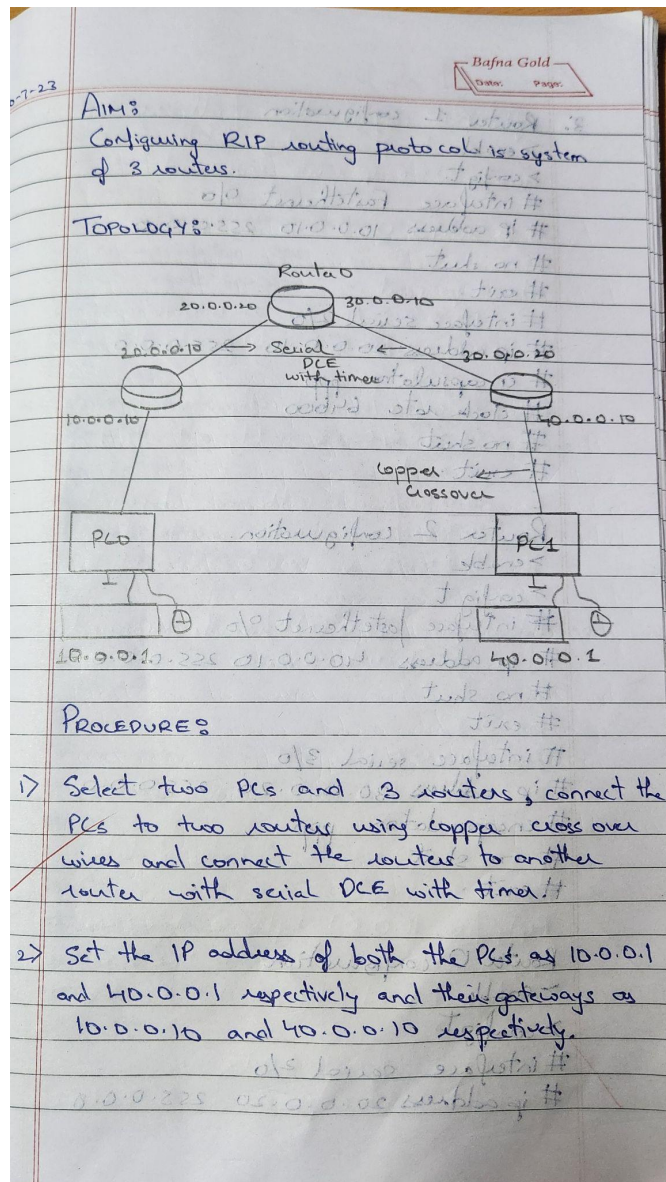 Bafna Gold
Date: Page:
-7-23
AIM:
Configuring RIP routing protocol is system
of 3 routers.
TOPOLOGY:
Router0
20.0.0.20 30.0.0.10
20.0.0.10 Serial 30.0.0.20
DCE
with timer
10.0.0.10 40.0.0.10
Copper
Crossover
PC0 PC1
10.0.0.1 40.0.0.1
PROCEDURE:
1) Select two PCs and 3 routers, connect the
PCs to two routers using copper cross over
wires and connect the routers to another
router with serial DCE with timer.
2) Set the IP address of both the PCs as 10.0.0.1
and 40.0.0.1 respectively and their gateways as
10.0.0.10 and 40.0.0.10 respectively.